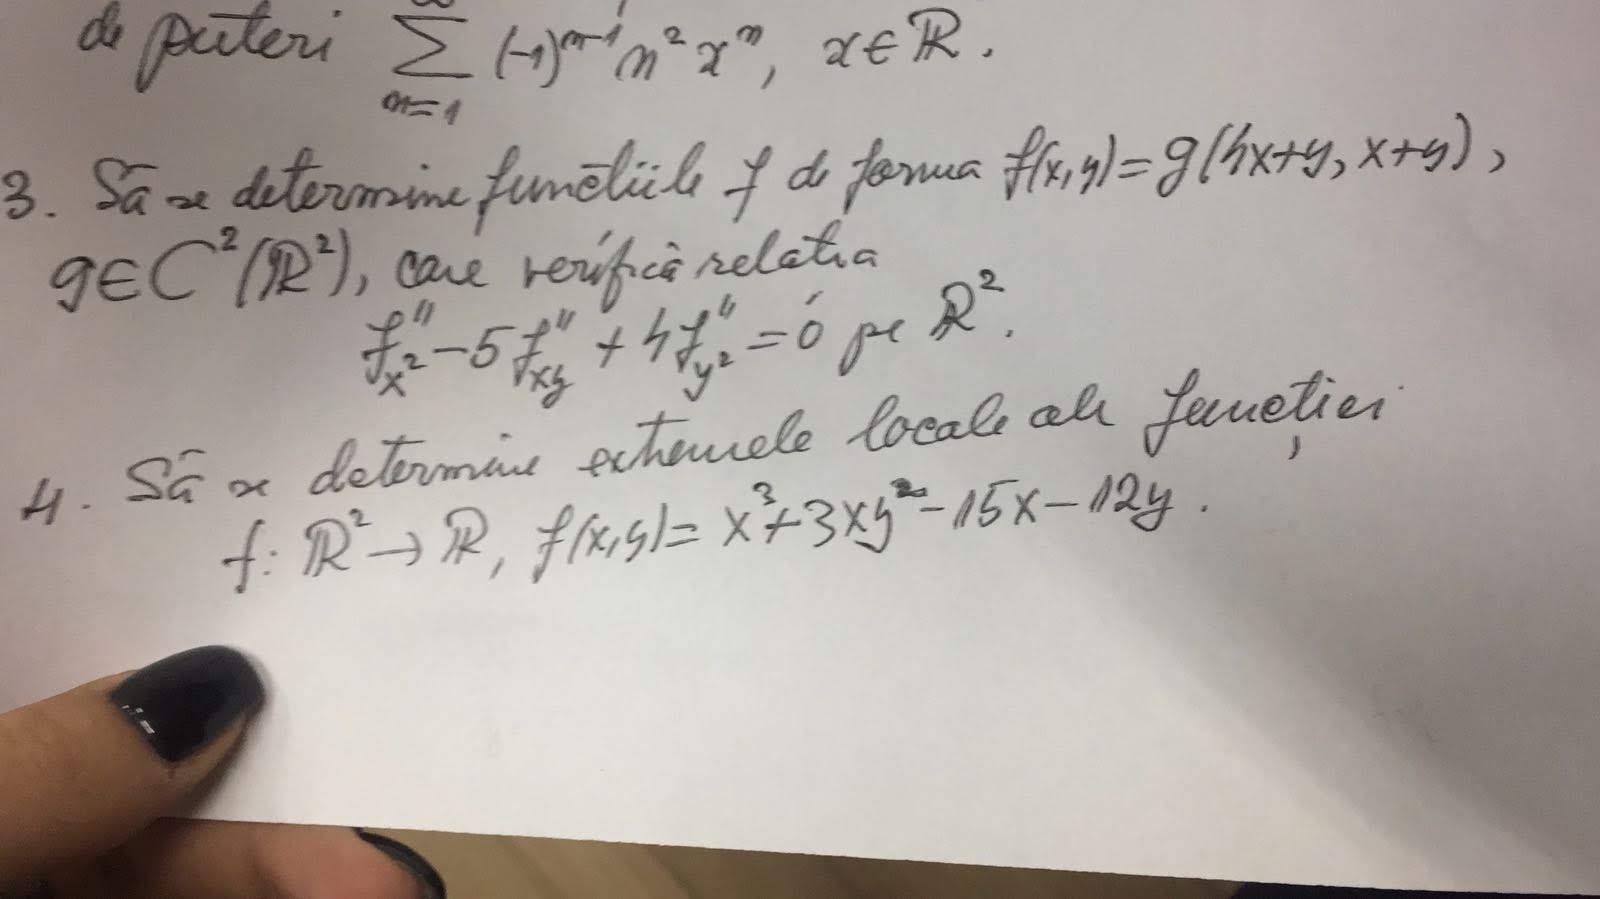 de puteri ∑ (-1)^{n-1} n² xⁿ, x∈ℝ.
n=1
3. Să se determine funcțiile f de forma f(x,y)=g(4x+y, x+y),
g∈C²(ℝ²), care verifică relația
f''_{x²} - 5f''_{xy} + 4f''_{y²} = 0 pe ℝ².
4. Să se determine extremele locale ale funcției
f: ℝ² → ℝ, f(x,y)= x³+3xy²-15x-12y.